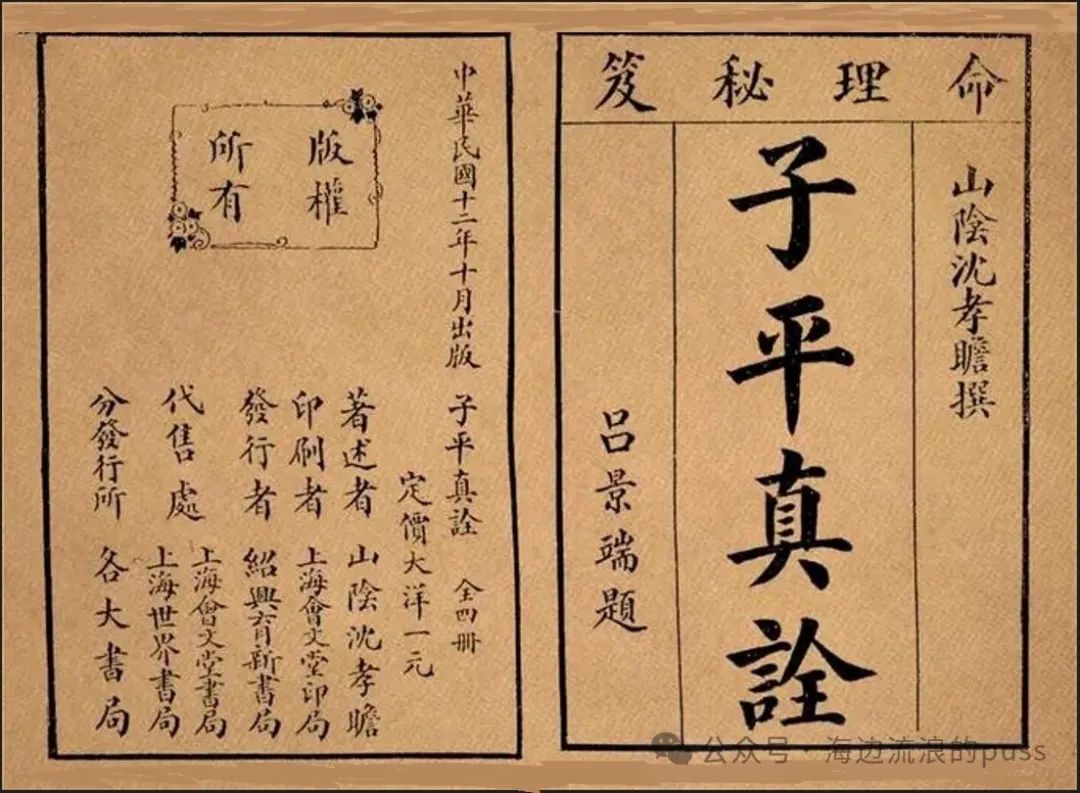 命理秘笈
山陰沈孝瞻撰
子平真詮
呂景端題
中華民國十二年十月出版
子平真詮 全四冊
定價大洋一元
著述者 山陰沈孝瞻
印刷者 上海會文堂印局
發行者 紹興育新書局
代售處 上海會文堂書局
上海世界書局
分發行所 各大書局
版權
所有
公众号·海边流浪的puss